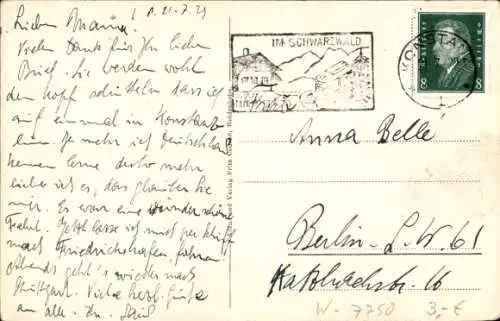 Lieber Mama! d. 21.7.29
Vielen Dank für Ihren lieben
Brief. Sie werden wohl
den Kopf schütteln dass ich
auf einmal in Konstanz
bin. Je mehr ich Deutschland
kennen lerne desto mehr
liebe ich es, das glauben Sie
mir. Es war eine wunderschöne
Fahrt. Jetzt lasse ich mich per Schiff
nach Friedrichshafen fahren
Abends geht's wieder nach
Stuttgart. Viele herzl. Grüße
an alle.
IM SCHWARZWALD
KONSTANZ
1
8 8
Anna Bellé
Berlin - S.W. 61
Katzbachstr. 16
W- 7750 3,- €